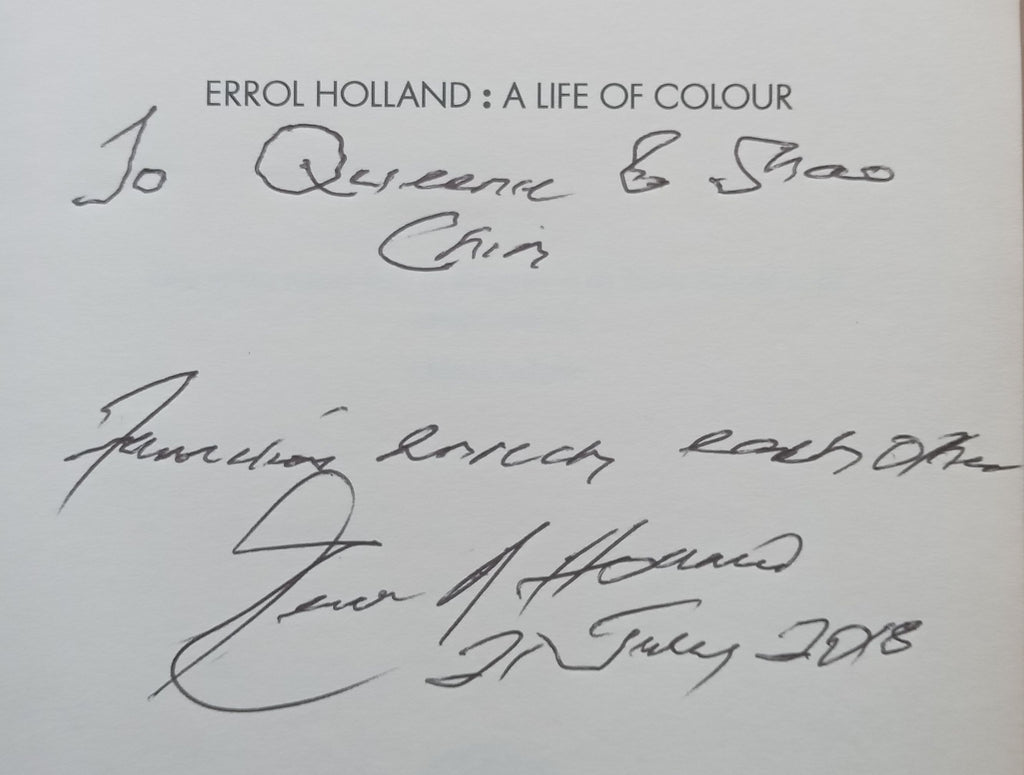 ERROL HOLLAND : A LIFE OF COLOUR
To Queenie & Shao
Chin
enrich each other
Errol A Holland
21 July 2018